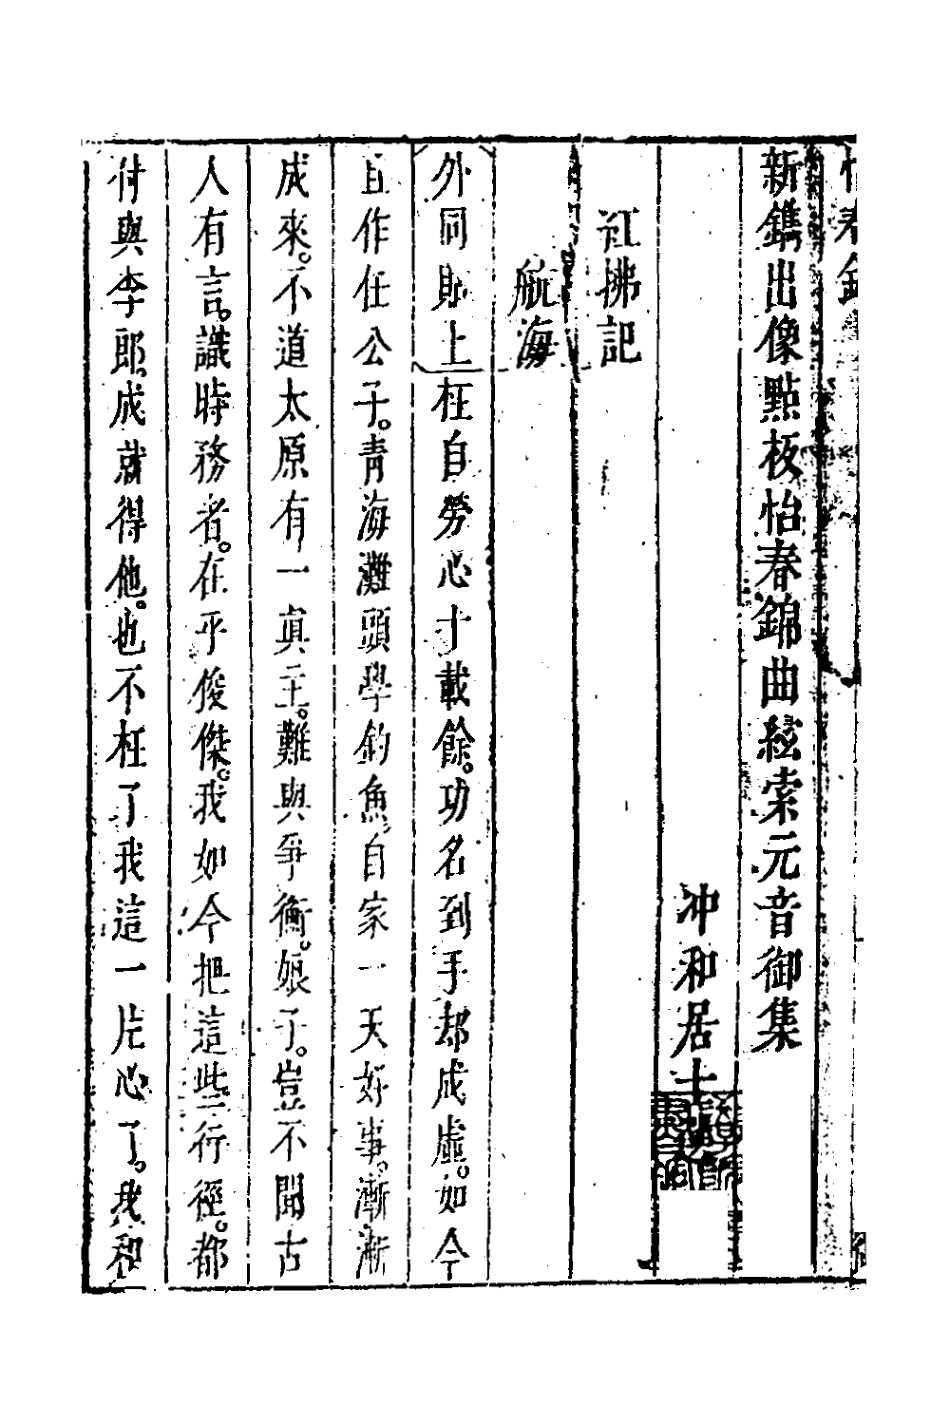 新鐫出像點板怡春錦曲絃索元音御集
冲和居士
紅拂記
航海
外同貼上枉自勞心十載餘。功名到手却成虛。如今
且作任公子。青海灘頭學釣魚自家一天好事。漸漸
成來。不道太原有一真主。難與爭衡。娘子。豈不聞古
人有言。識時務者。在乎俊傑。我如今把這些行徑。都
付與李郎。成就得他。也不枉了我這一片心了。我和